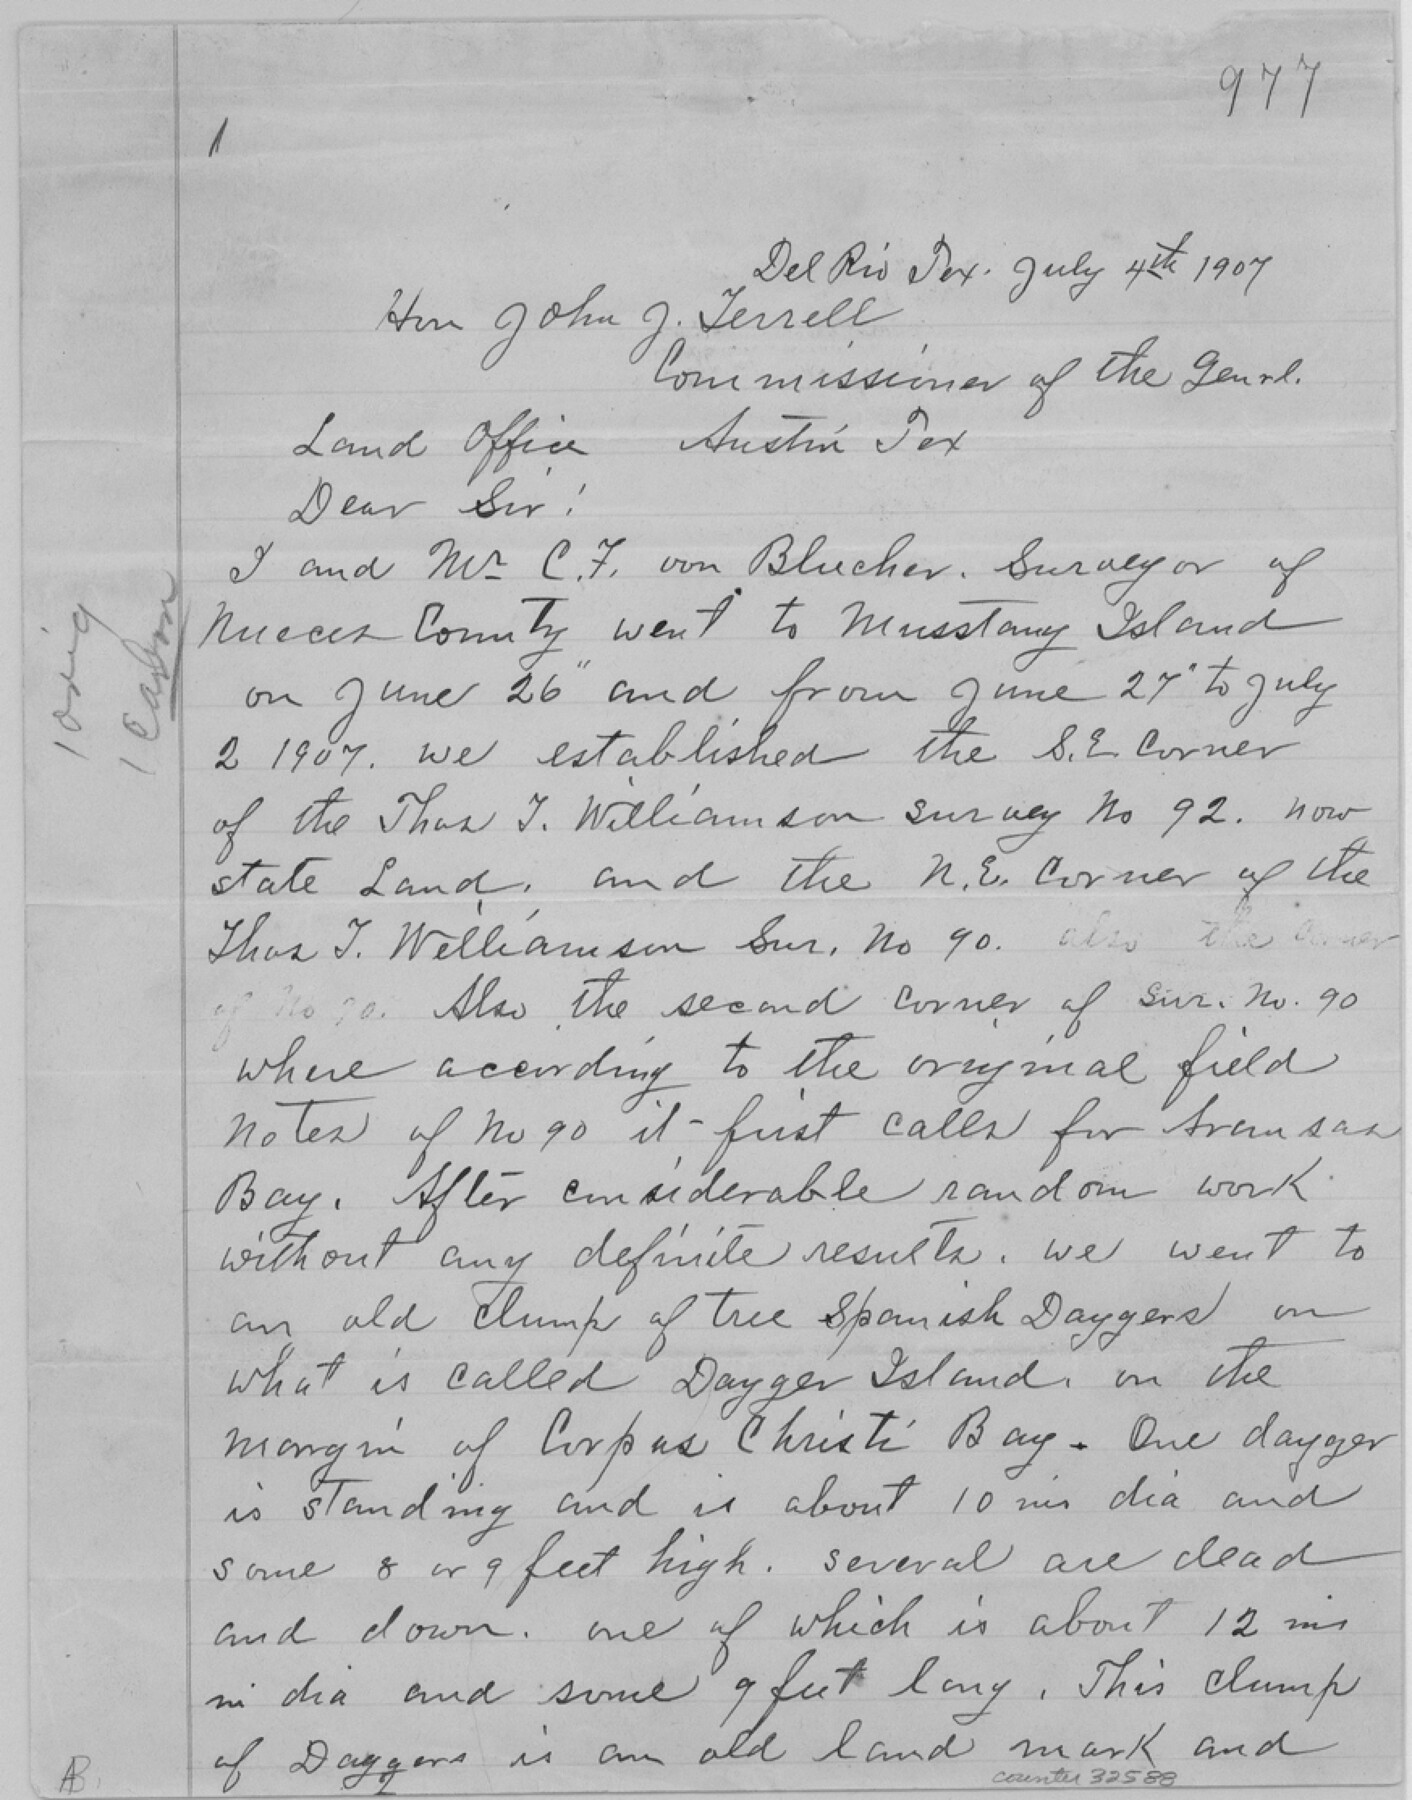 977
1
Del Rio Tex. July 4th 1907
Hon John J. Terrell
Commissioner of the Genrl.
Land Office Austin Tex
Dear Sir!
I and Mr C.F. von Blucher. Surveyor of
Nueces County went to Musstang Island
on June 26" and from June 27" to July
2 1907. we established the S.E. Corner
of the Thos T. Williamson survey No 92. now
state Land. and the N.E. Corner of the
Thos T. Williamson Sur. No 90. also the Corner
of No 90. Also the second corner of Sur. No. 90
where according to the original field
notes of No 90 it first calls for Aransas
Bay. After considerable random work
without any definite results. we went to
an old clump of tree Spanish Daggers on
what is called Dagger Island. on the
margin of Corpus Christi Bay. One dagger
is standing and is about 10 ins dia and
some 8 or 9 feet high. several are dead
and down. one of which is about 12 ins
in dia and some 9 feet long. This clump
of Daggers is an old land mark and
counter 32588
1 orig
1 Carbon
AB